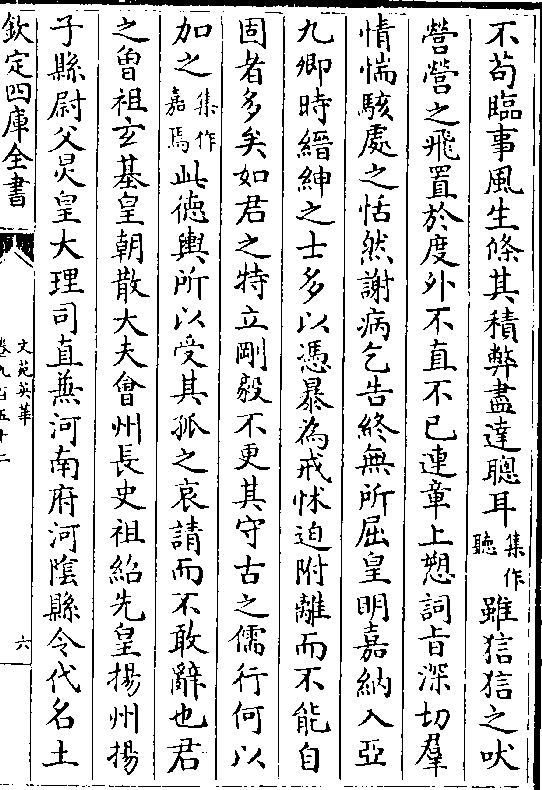 不苟臨事風生條其積弊盡達聰耳集作聽雖狺狺之吠
營營之飛置於度外不直不已連章上愬詞㫖深切羣
情惴駭處之恬然謝病乞告終無所屈皇明嘉納入亞
九卿時縉紳之士多以憑暴為戒怵迫附離而不能自
固者多矣如君之特立剛毅不更其守古之儒行何以
加之集作嘉焉此德輿所以受其孤之哀請而不敢辭也君
之曾祖玄基皇朝散大夫會州長史祖紹先皇揚州揚
子縣尉父炅皇大理司直兼河南府河隂縣令代名士
欽定四庫全書
文苑英華
卷九百五十二
六